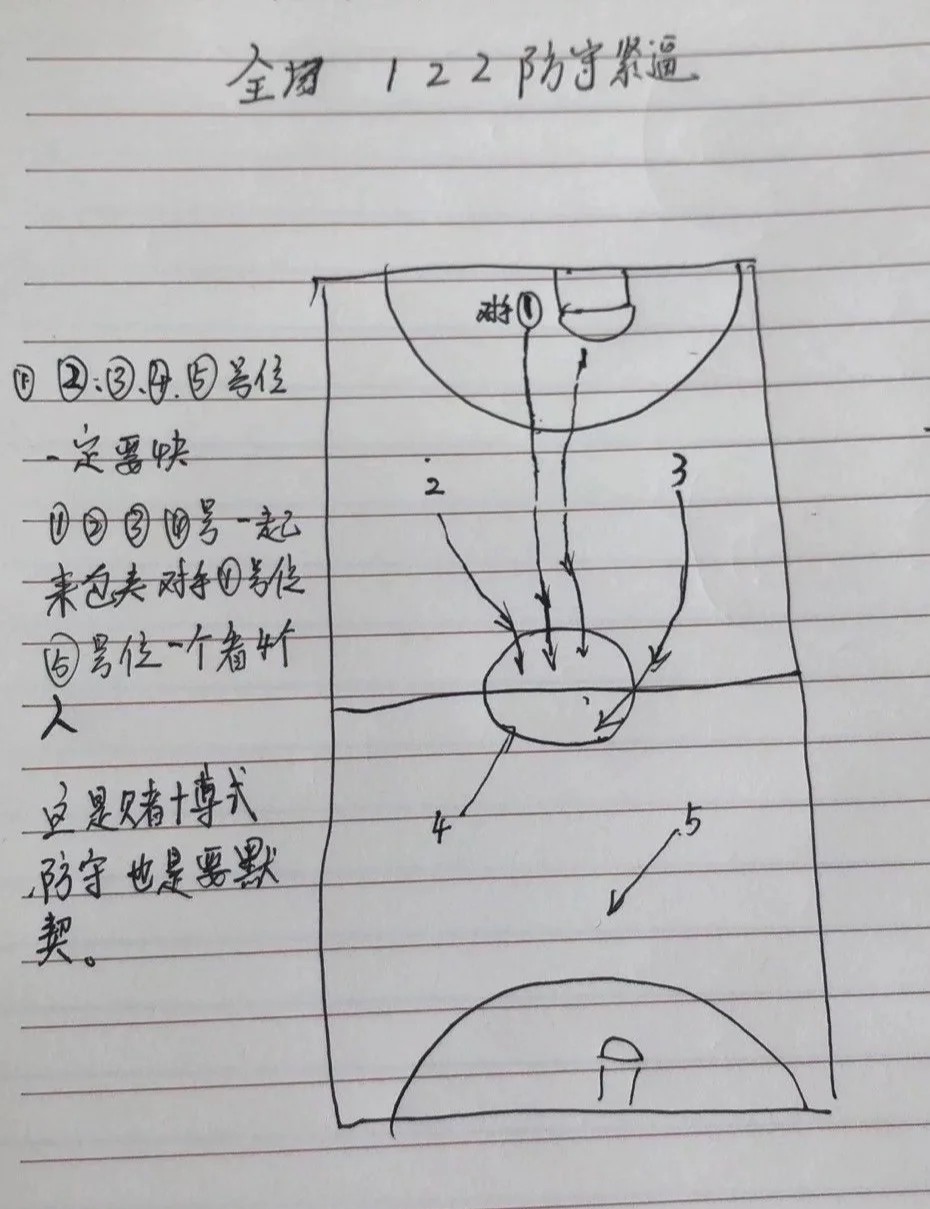 全场 1 2 2 防守紧逼
对手①
1
2
3
① ②.③.④.⑤号位
一定要快
① ② ③ ④号一起
来包夹对手①号位
⑤号位一个看4个
人
这是赌博式
防守也是要默
契。
4
5